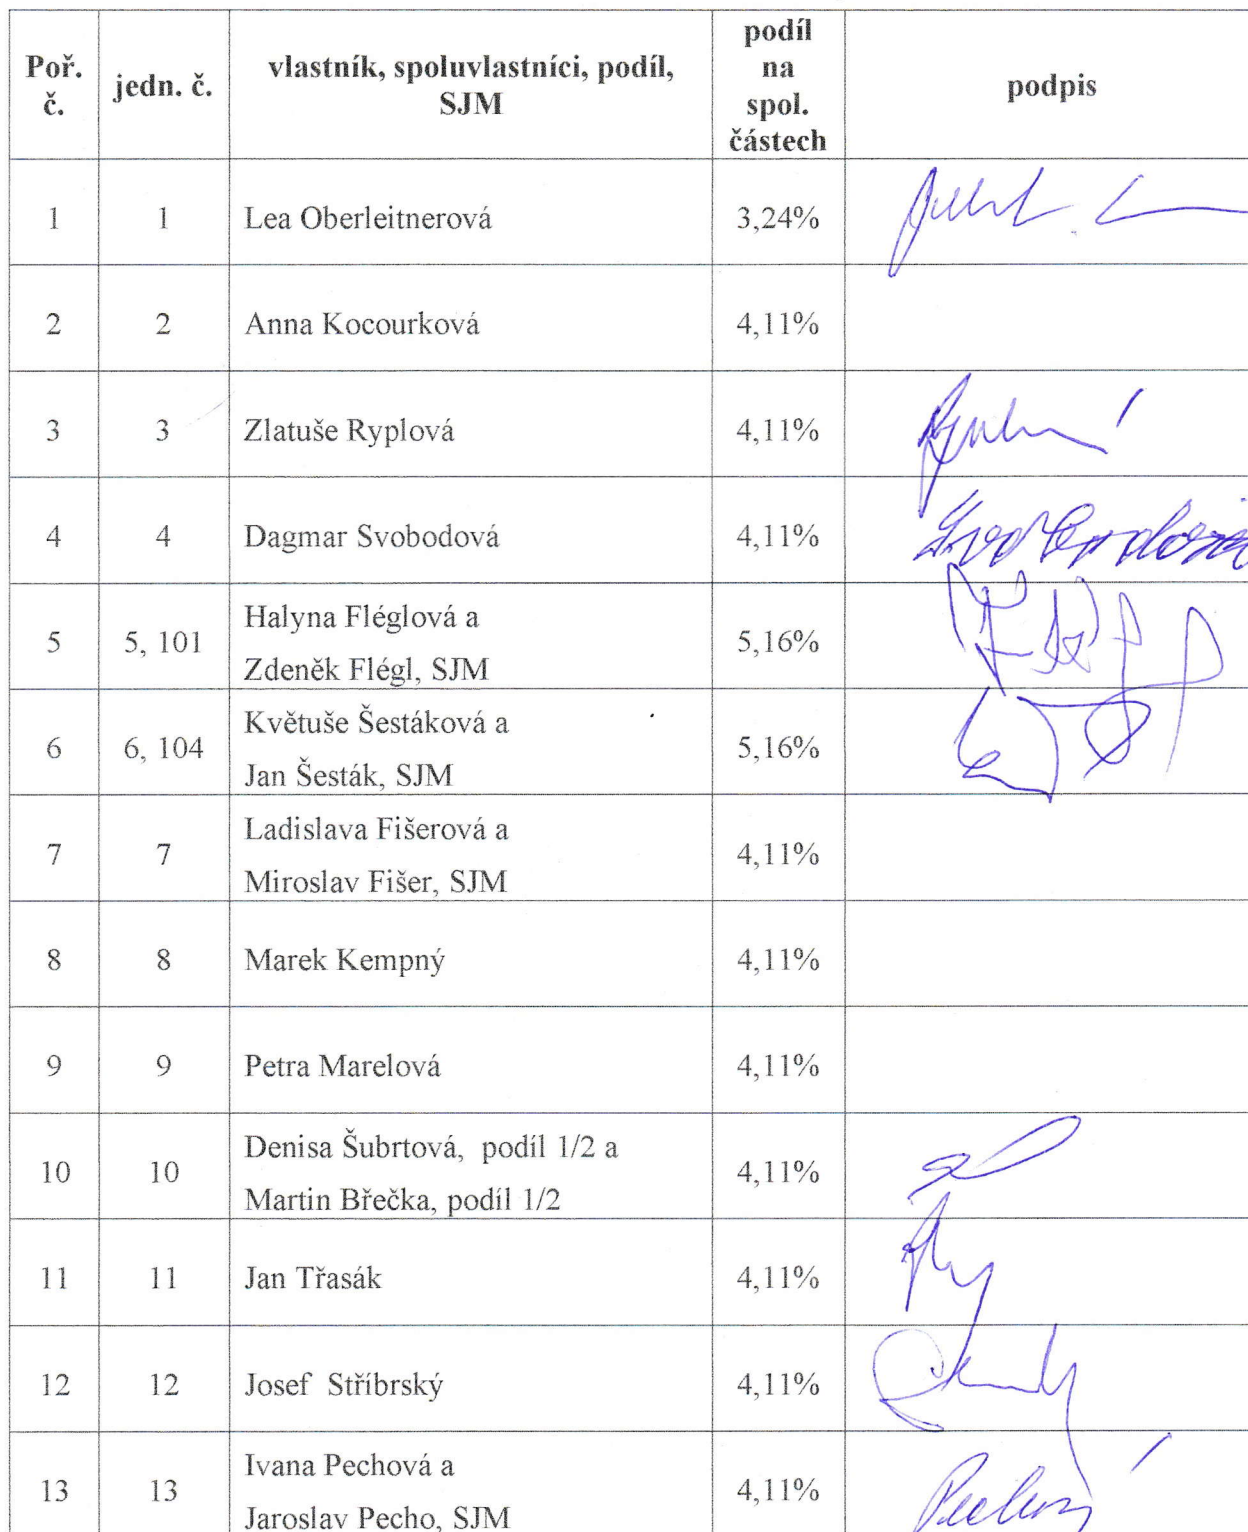 Poř. č. jedn. č. vlastník, spoluvlastníci, podíl, SJM podíl na spol. částech podpis
1 1 Lea Oberleitnerová 3,24%
2 2 Anna Kocourková 4,11%
3 3 Zlatuše Ryplová 4,11%
4 4 Dagmar Svobodová 4,11% Svobodová
5 5, 101 Halyna Fléglová a
Zdeněk Flégl, SJM 5,16%
6 6, 104 Květuše Šestáková a
Jan Šesták, SJM 5,16%
7 7 Ladislava Fišerová a
Miroslav Fišer, SJM 4,11%
8 8 Marek Kempný 4,11%
9 9 Petra Marelová 4,11%
10 10 Denisa Šubrtová, podíl 1/2 a
Martin Břečka, podíl 1/2 4,11%
11 11 Jan Třasák 4,11%
12 12 Josef Stříbrský 4,11%
13 13 Ivana Pechová a
Jaroslav Pecho, SJM 4,11% Pechová